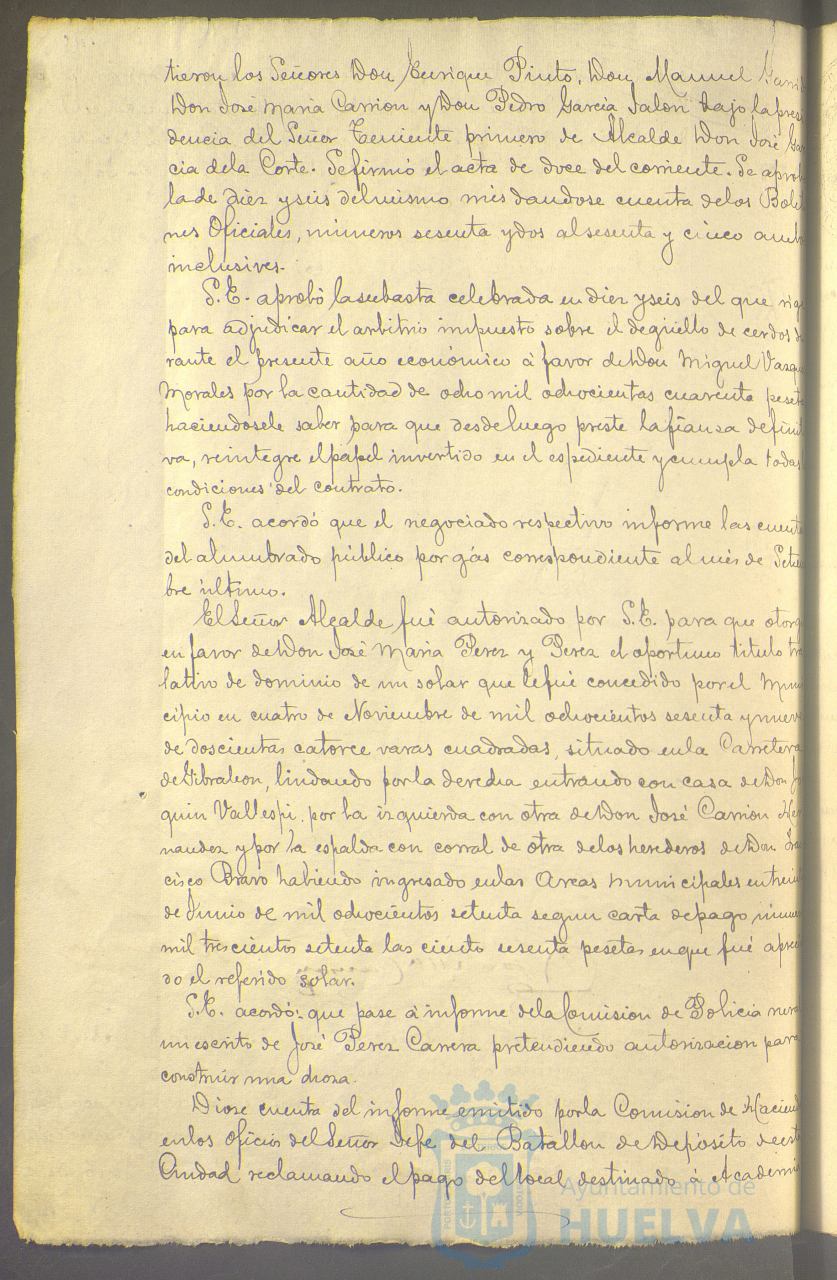 tieron los Señores Don Enrique Pinto, Don Manuel Garrid
Don José Maria Carrion y Don Pedro Garcia Jalon bajo la presi
dencia del Señor Teniente primero de Alcalde Don José Gar
cia dela Corte. Sefirmó el acta de doce del corriente. Se aprob
la de diez yseis delmismo mes dandose cuenta delos Bolet
nes Oficiales, números sesenta ydos alsesenta y cinco amb
inclusives.
S.E. aprobó lasubasta celebrada en diez yseis del que rig
para adjudicar el arbitrio impuesto sobre el degüello de cerdos du
rante el presente año económico á favor deDon Miguel Vazqu
Morales por la cantidad de ocho mil ochocientas cuarenta peset
haciendosele saber para que desdeluego preste lafianza definit
va, reintegre elpapel invertido en el espediente ycumpla todas
condiciones del contrato.
S.E. acordó que el negociado respectivo informe las cuent
del alumbrado público por gás correspondiente al mes de Setiem
bre último.
El Señor Alcalde fué autorizado por S.E. para que otorg
en favor deDon José Maria Perez y Perez el oportuno titulo tras
lativo de dominio de un solar que lefué concedido por el Muni
cipio en cuatro de Noviembre de mil ochocientos sesenta ynueve
de doscientas catorce varas cuadradas, situado enla Carretera
deGibraleon, lindando porla derecha entrando con casa deDon Joa
quin Vallespi, por la izquierda con otra deDon José Carrion Her
nandez y por la espalda con corral de otra delos herederos deDon Fran
cisco Bravo habiendo ingresado enlas Arcas municipales en treint
de Junio de mil ochocientos setenta segun carta depago núme
mil trescientos setenta las ciento sesenta pesetas enque fué aprecia
do el referido solar.
S.E. acordó: que pase á informe dela Comision de Policia rural
un escrito de José Perez Carrera pretendiendo autorizacion para
construir una choza.
Diose cuenta del informe emitido porla Comision de Haciend
enlos oficios del Señor Jefe del Batallon de Depósito de est
Ciudad reclamando elpago del local destinado á Academi
Ayuntamiento de
HUELVA